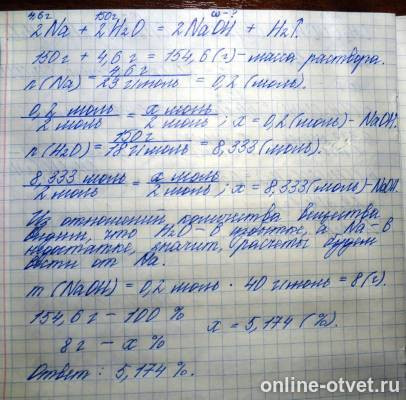 4,6г 150г ω-?
2Na + 2H₂O = 2NaOH + H₂↑.
150г + 4,6г = 154,6(г)-масса раствора.
n(Na) = 4,6г / 23г/моль = 0,2 (моль).
0,2 моль / 2 моль = x моль / 2 моль ; x = 0,2(моль)-NaOH.
n(H₂O) = 150г / 18г/моль = 8,333(моль).
8,333 моль / 2 моль = x моль / 2 моль ; x = 8,333(моль)-NaOH.
Из отношения количества вещества
видим, что H₂O-в избытке, а Na-в
недостатке, значит, расчеты будем
вести от Na.
m(NaOH) = 0,2 моль · 40 г/моль = 8(г).
154,6г - 100 %
8г - x % x = 5,174(%).
Ответ: 5,174 %.
online-otvet.ru